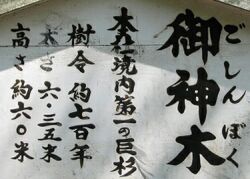 御神木
ごしんぼく
本社境内第一の巨杉
樹令 約七百年
太さ 六・三五米
高さ 約六〇米